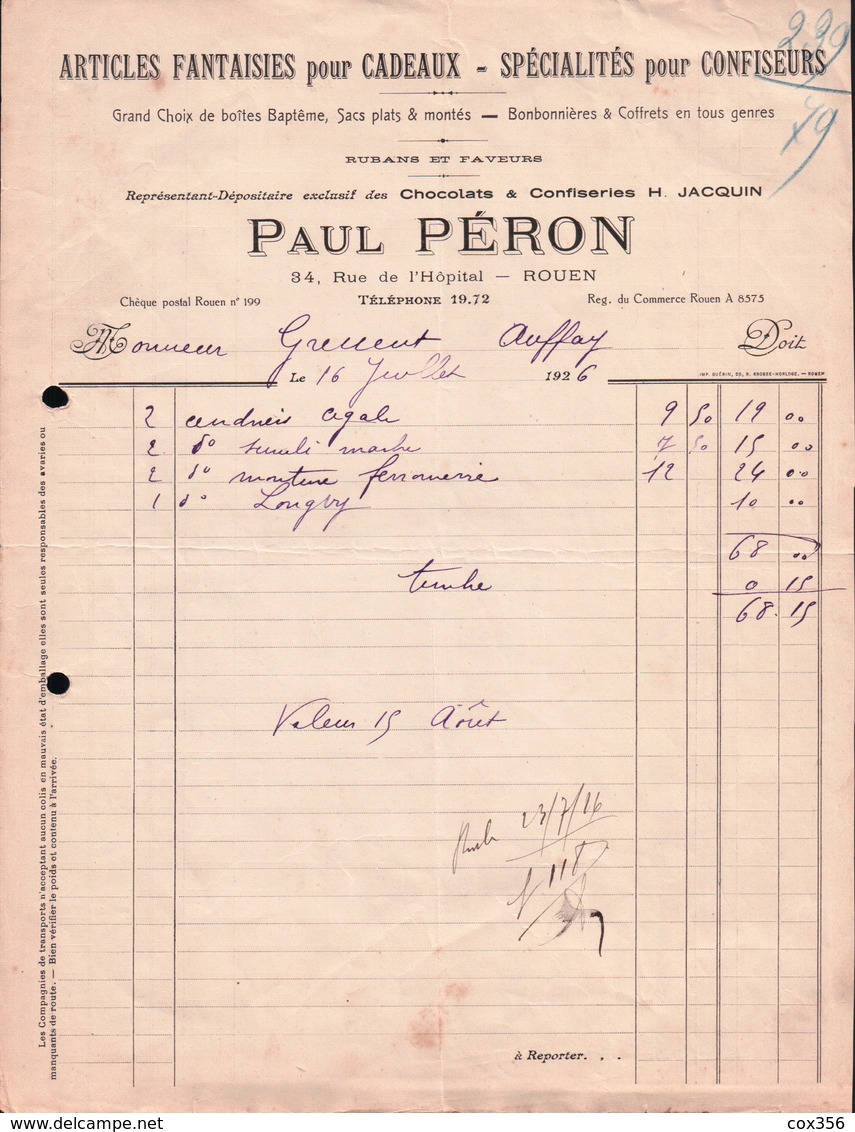 229
79
ARTICLES FANTAISIES pour CADEAUX - SPÉCIALITÉS pour CONFISEURS
Grand Choix de boîtes Baptême, Sacs plats & montés — Bonbonnières & Coffrets en tous genres
RUBANS ET FAVEURS
Représentant-Dépositaire exclusif des Chocolats & Confiseries H. JACQUIN
PAUL PÉRON
34, Rue de l'Hôpital — ROUEN
Chèque postal Rouen n° 199 TÉLÉPHONE 19.72 Reg. du Commerce Rouen A 8575
Monsieur Gressent Auffay Doit
IMP. GUÉRIN, 50, R. GROSSE-HORLOGE. — ROUEN
Le 16 Juillet 1926
2 cendriers cigale 9 50 19 00
2 d° simili marbre 7 50 15 00
2 d° monture ferronnerie 12 24 00
1 d° Longwy 10 00
68 00
timbre 0 15
68.15
Valeur 15 Août
23/7/26
N 118
à Reporter. . .
Les Compagnies de transports n'acceptant aucun colis en mauvais état d'emballage elles sont seules responsables des avaries ou
manquants de route. — Bien vérifier le poids et contenu à l'arrivée.
cox356